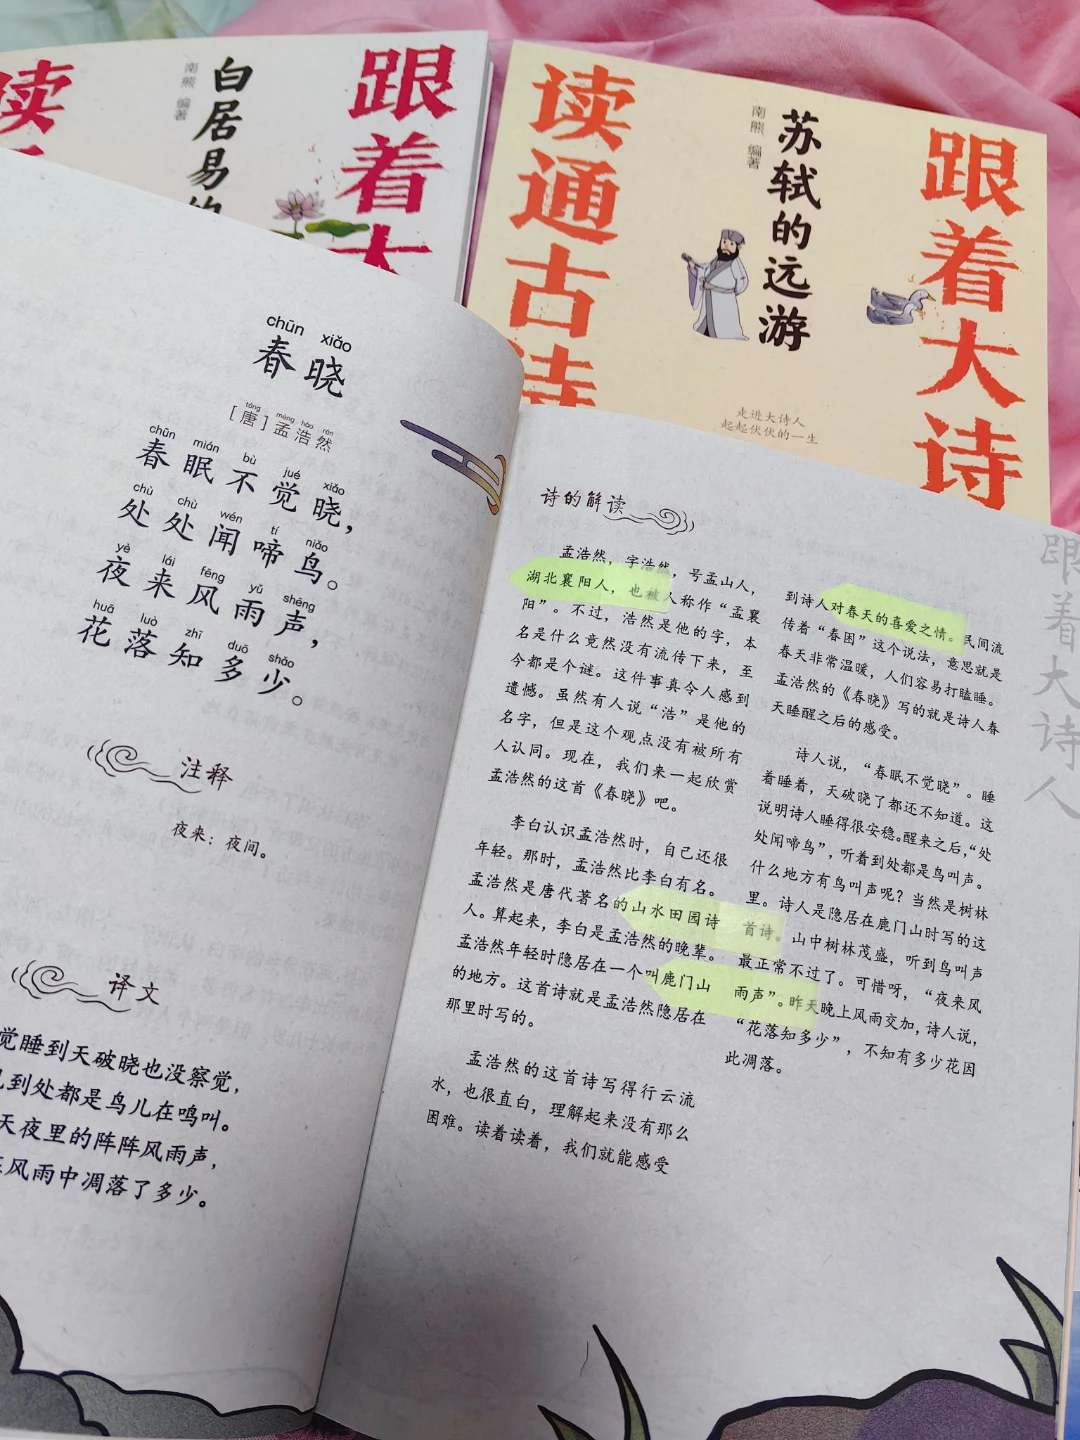 读
白居易的
南熊 编著
跟着大
读通古诗
南熊 编著
苏轼的远游
跟着大诗
走进大诗人
起起伏伏的一生
chūn xiǎo
春晓
táng mèng hào rán
[唐]孟浩然
chūn mián bù jué xiǎo
春眠不觉晓，
chù chù wén tí niǎo
处处闻啼鸟。
yè lái fēng yǔ shēng
夜来风雨声，
huā luò zhī duō shǎo
花落知多少。
注释
夜来：夜间。
译文
觉睡到天破晓也没察觉，
到处都是鸟儿在鸣叫。
天夜里的阵阵风雨声，
风雨中凋落了多少。
诗的解读
孟浩然，字浩然，号孟山人，
湖北襄阳人，也被人称作“孟襄
阳”。不过，浩然是他的字，本
名是什么竟然没有流传下来，至
今都是个谜。这件事真令人感到
遗憾。虽然有人说“浩”是他的
名字，但是这个观点没有被所有
人认同。现在，我们来一起欣赏
孟浩然的这首《春晓》吧。
李白认识孟浩然时，自己还很
年轻。那时，孟浩然比李白有名。
孟浩然是唐代著名的山水田园诗
人。算起来，李白是孟浩然的晚辈。
孟浩然年轻时隐居在一个叫鹿门山
的地方。这首诗就是孟浩然隐居在
那里时写的。
孟浩然的这首诗写得行云流
水，也很直白，理解起来没有那么
困难。读着读着，我们就能感受
到诗人对春天的喜爱之情。民间流
传着“春困”这个说法，意思就是
春天非常温暖，人们容易打瞌睡。
孟浩然的《春晓》写的就是诗人春
天睡醒之后的感受。
诗人说，“春眠不觉晓”。睡
着睡着，天破晓了都还不知道。这
说明诗人睡得很安稳。醒来之后，“处
处闻啼鸟”，听着到处都是鸟叫声。
什么地方有鸟叫声呢？当然是树林
里。诗人是隐居在鹿门山时写的这
首诗。山中树林茂盛，听到鸟叫声
最正常不过了。可惜呀，“夜来风
雨声”。昨天晚上风雨交加，诗人说，
“花落知多少”，不知有多少花因
此凋落。
跟着大诗人